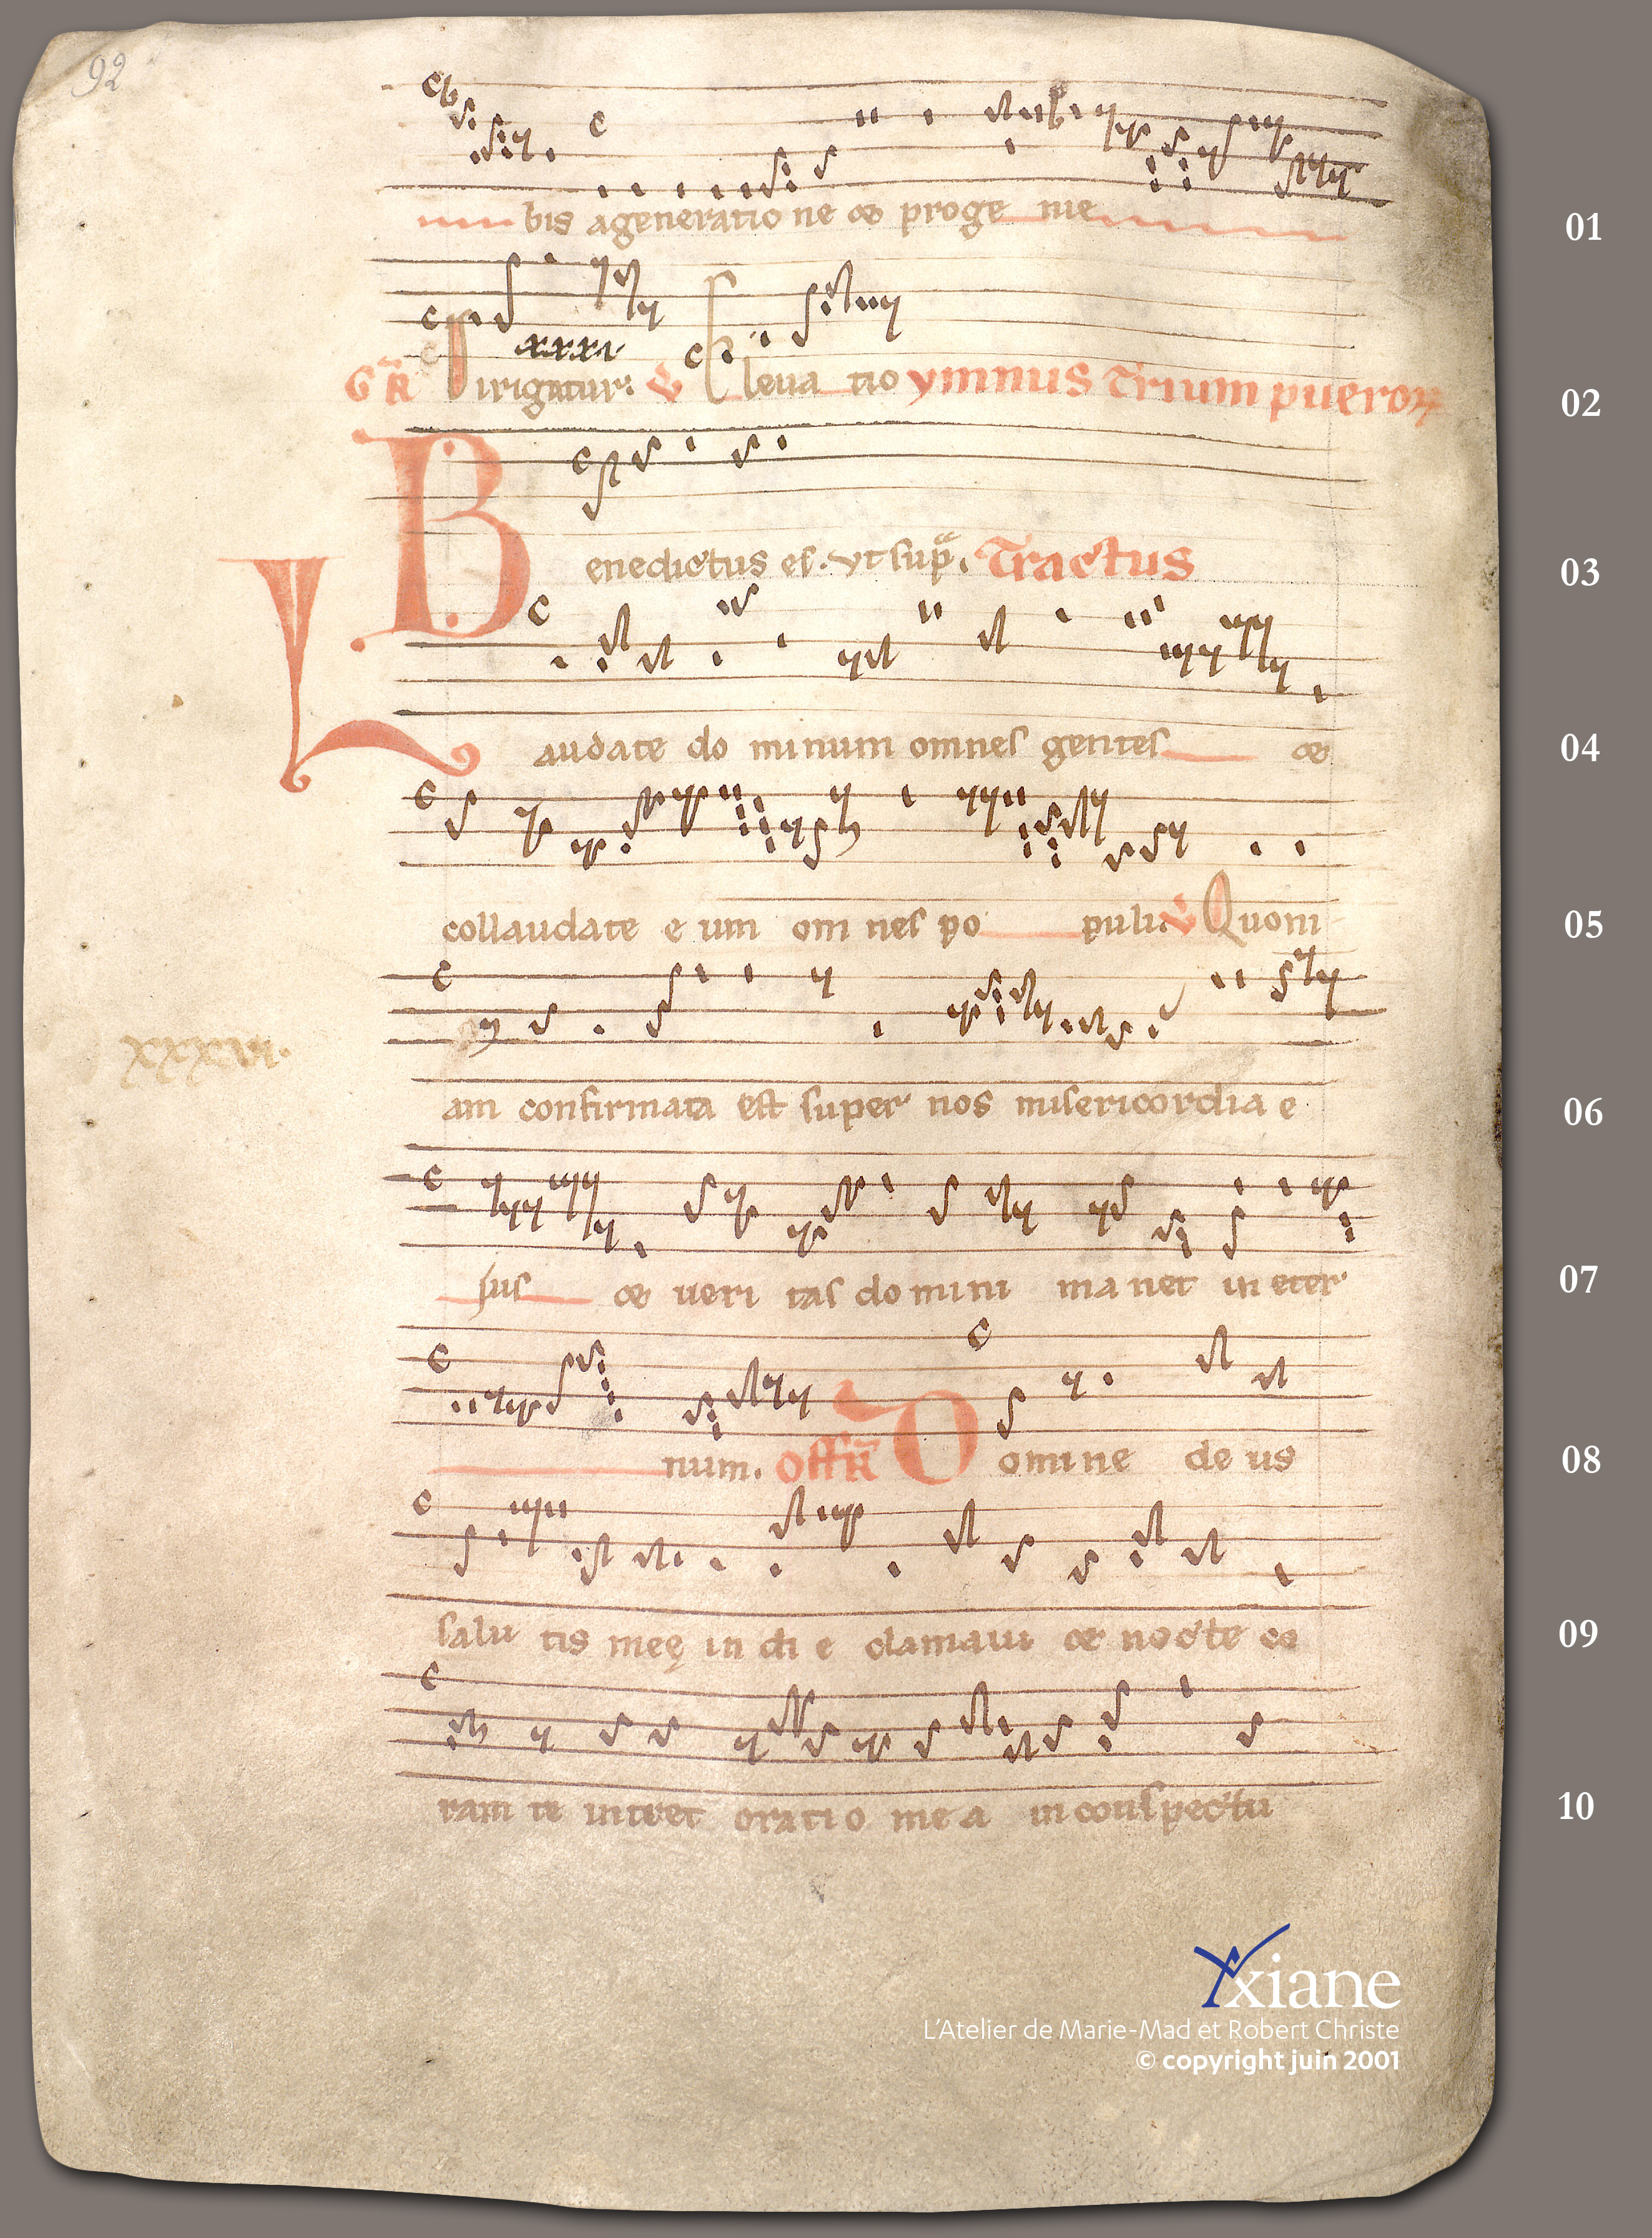 92
bis a generatio ne & proge nie
01
xxxi
GR Dirigatur: V Eleua tio ymnus Trium pueroꝝ
02
Benedictus es. vt sup̃. Tractus
03
Laudate do minum omnes gentes &
04
collaudate e um om nes po puli. V Quoni
05
xxxvi.
am confirmata est super nos misericordia e
06
ius & ueri tas domini ma net in eter
07
num. Off̃R Domine de us
08
salu tis meę in di e clamaui & nocte co
09
ram te intret oratio me a in conspectu
10
Yxiane
L'Atelier de Marie-Mad et Robert Christe
© copyright juin 2001